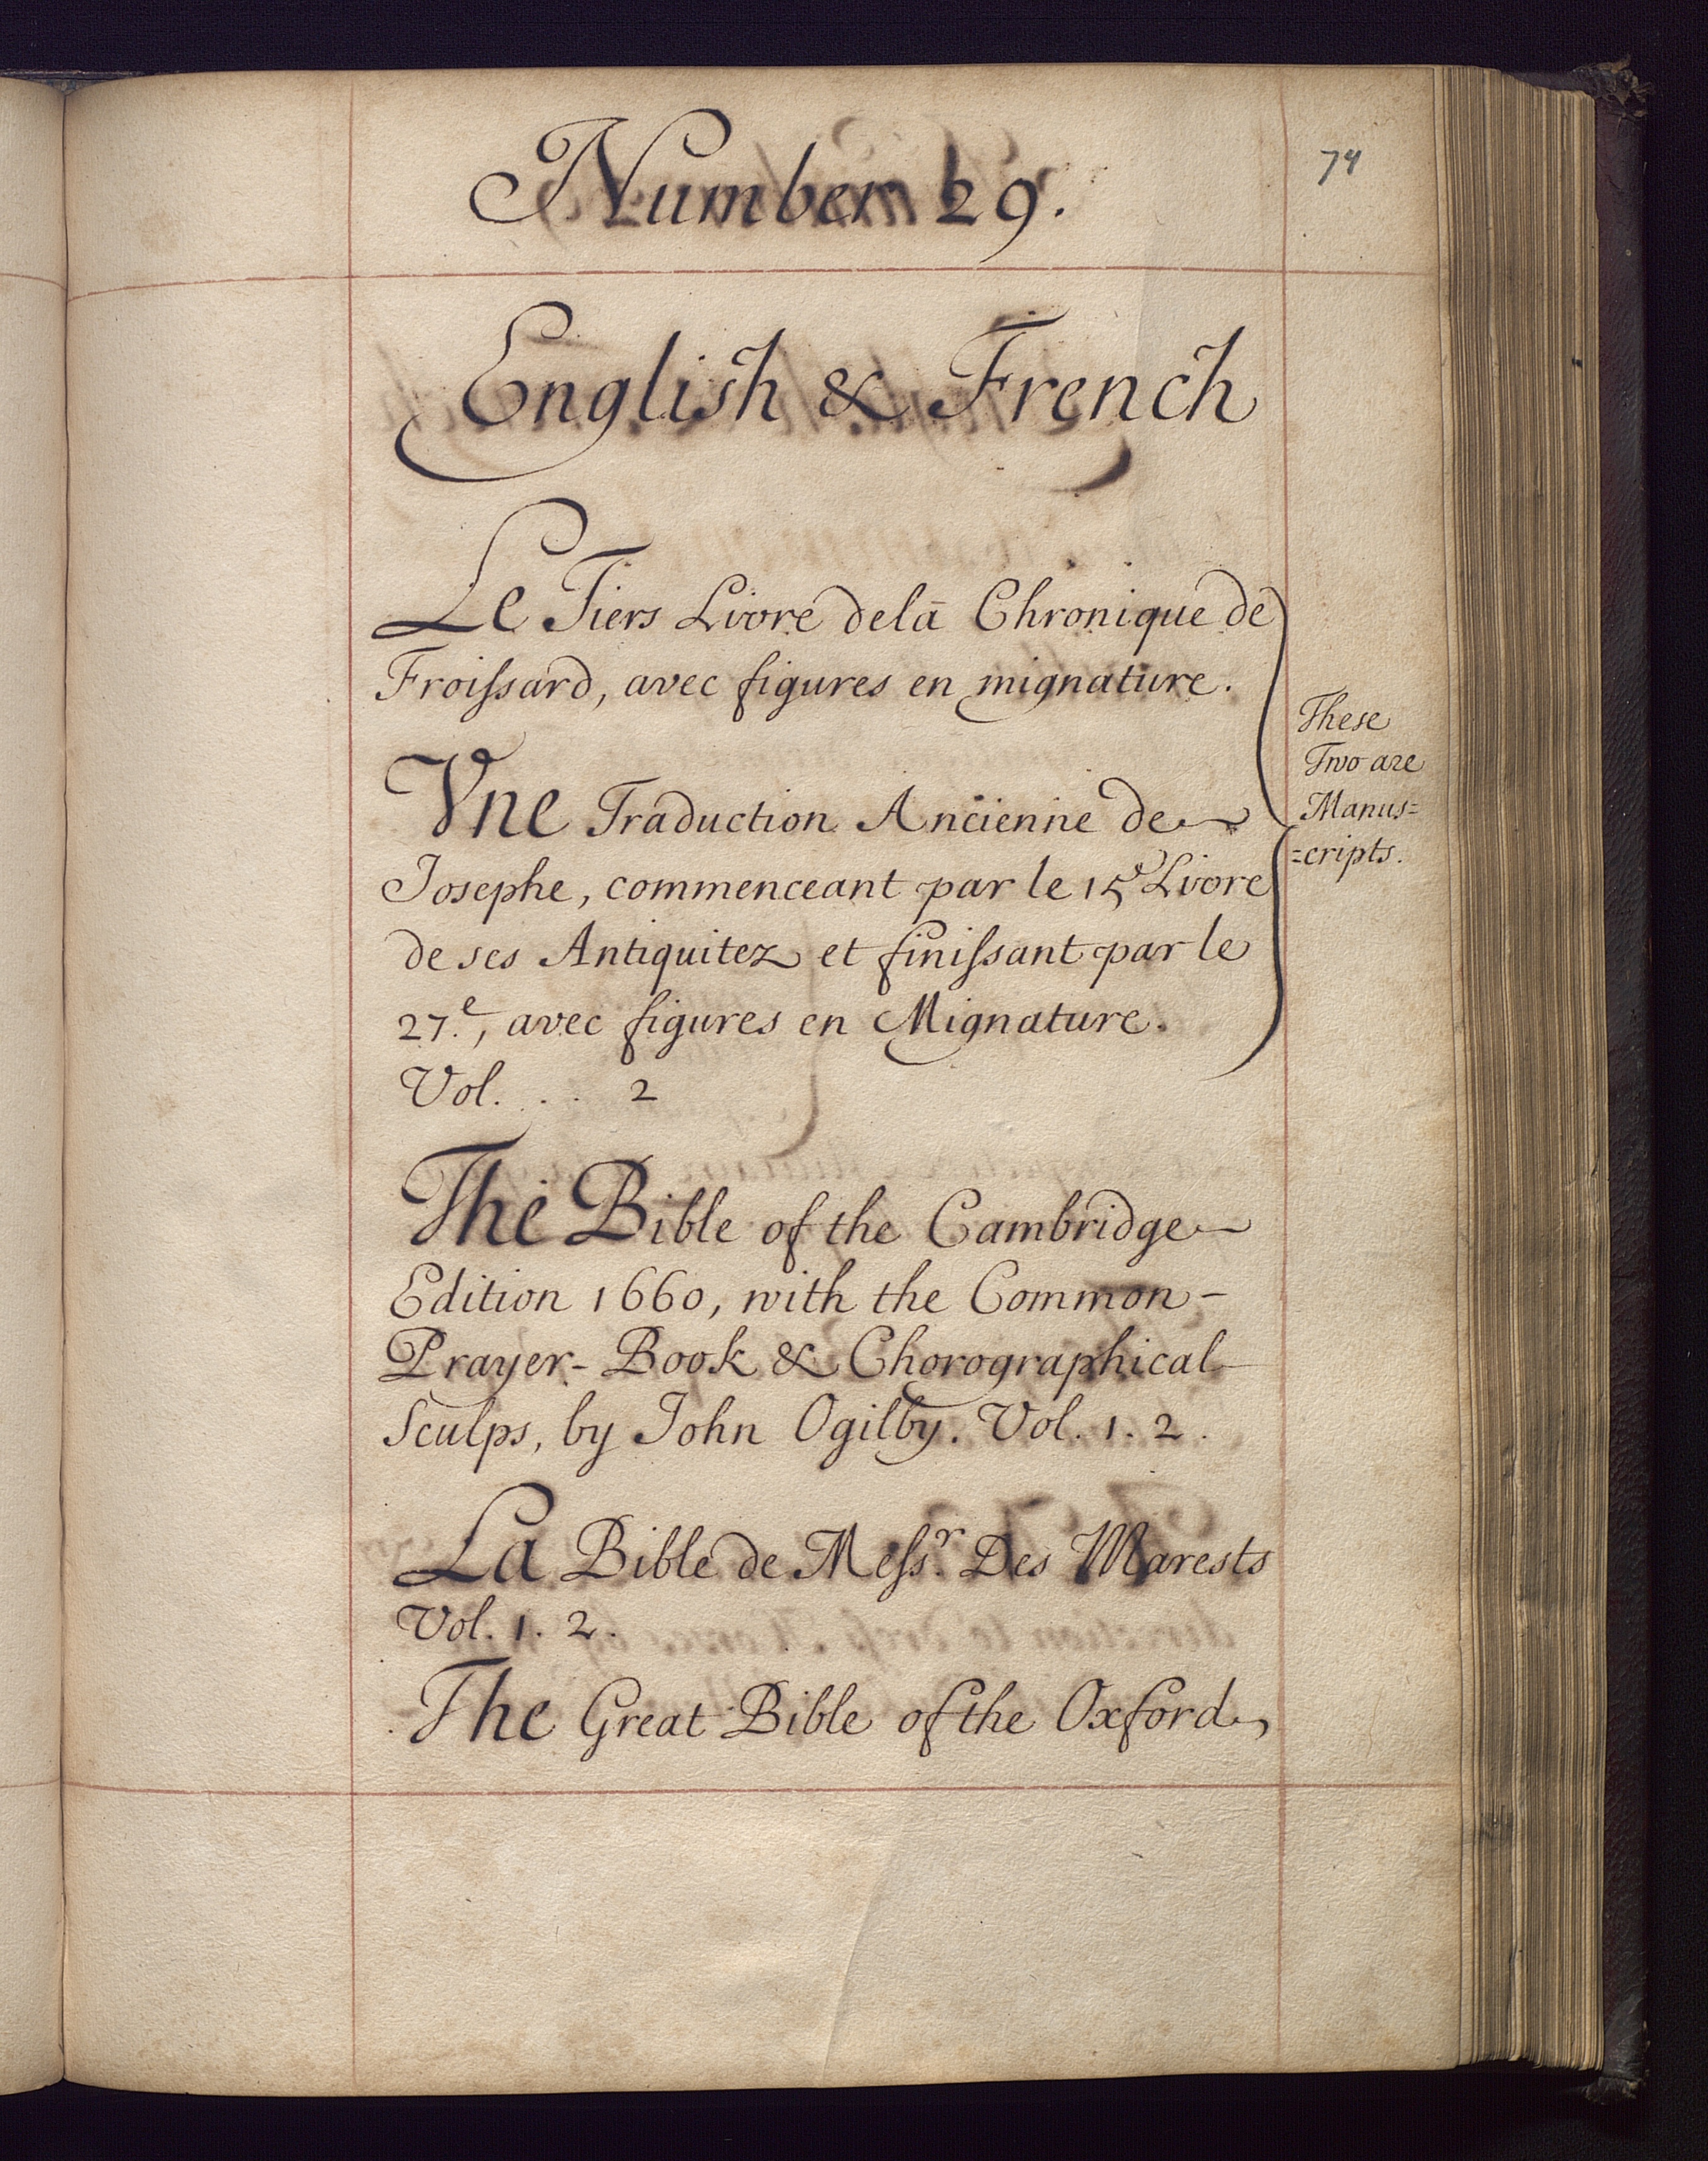 Number 29.
74
English & French
Le Tiers Livre de la Chronique de
Froissard, avec figures en mignature.
Vne Traduction Ancienne de
Josephe, commenceant par le 15e Livre
de ses Antiquitez et finissant par le
27.e, avec figures en Mignature.
Vol. . . 2
These
Two are
Manus=
=cripts.
The Bible of the Cambridge
Edition 1660, with the Common-
Prayer-Book & Chorographical
Sculps, by John Ogilby. Vol. 1. 2.
La Bible de Messr. Des Marests
Vol. 1. 2.
The Great Bible of the Oxford